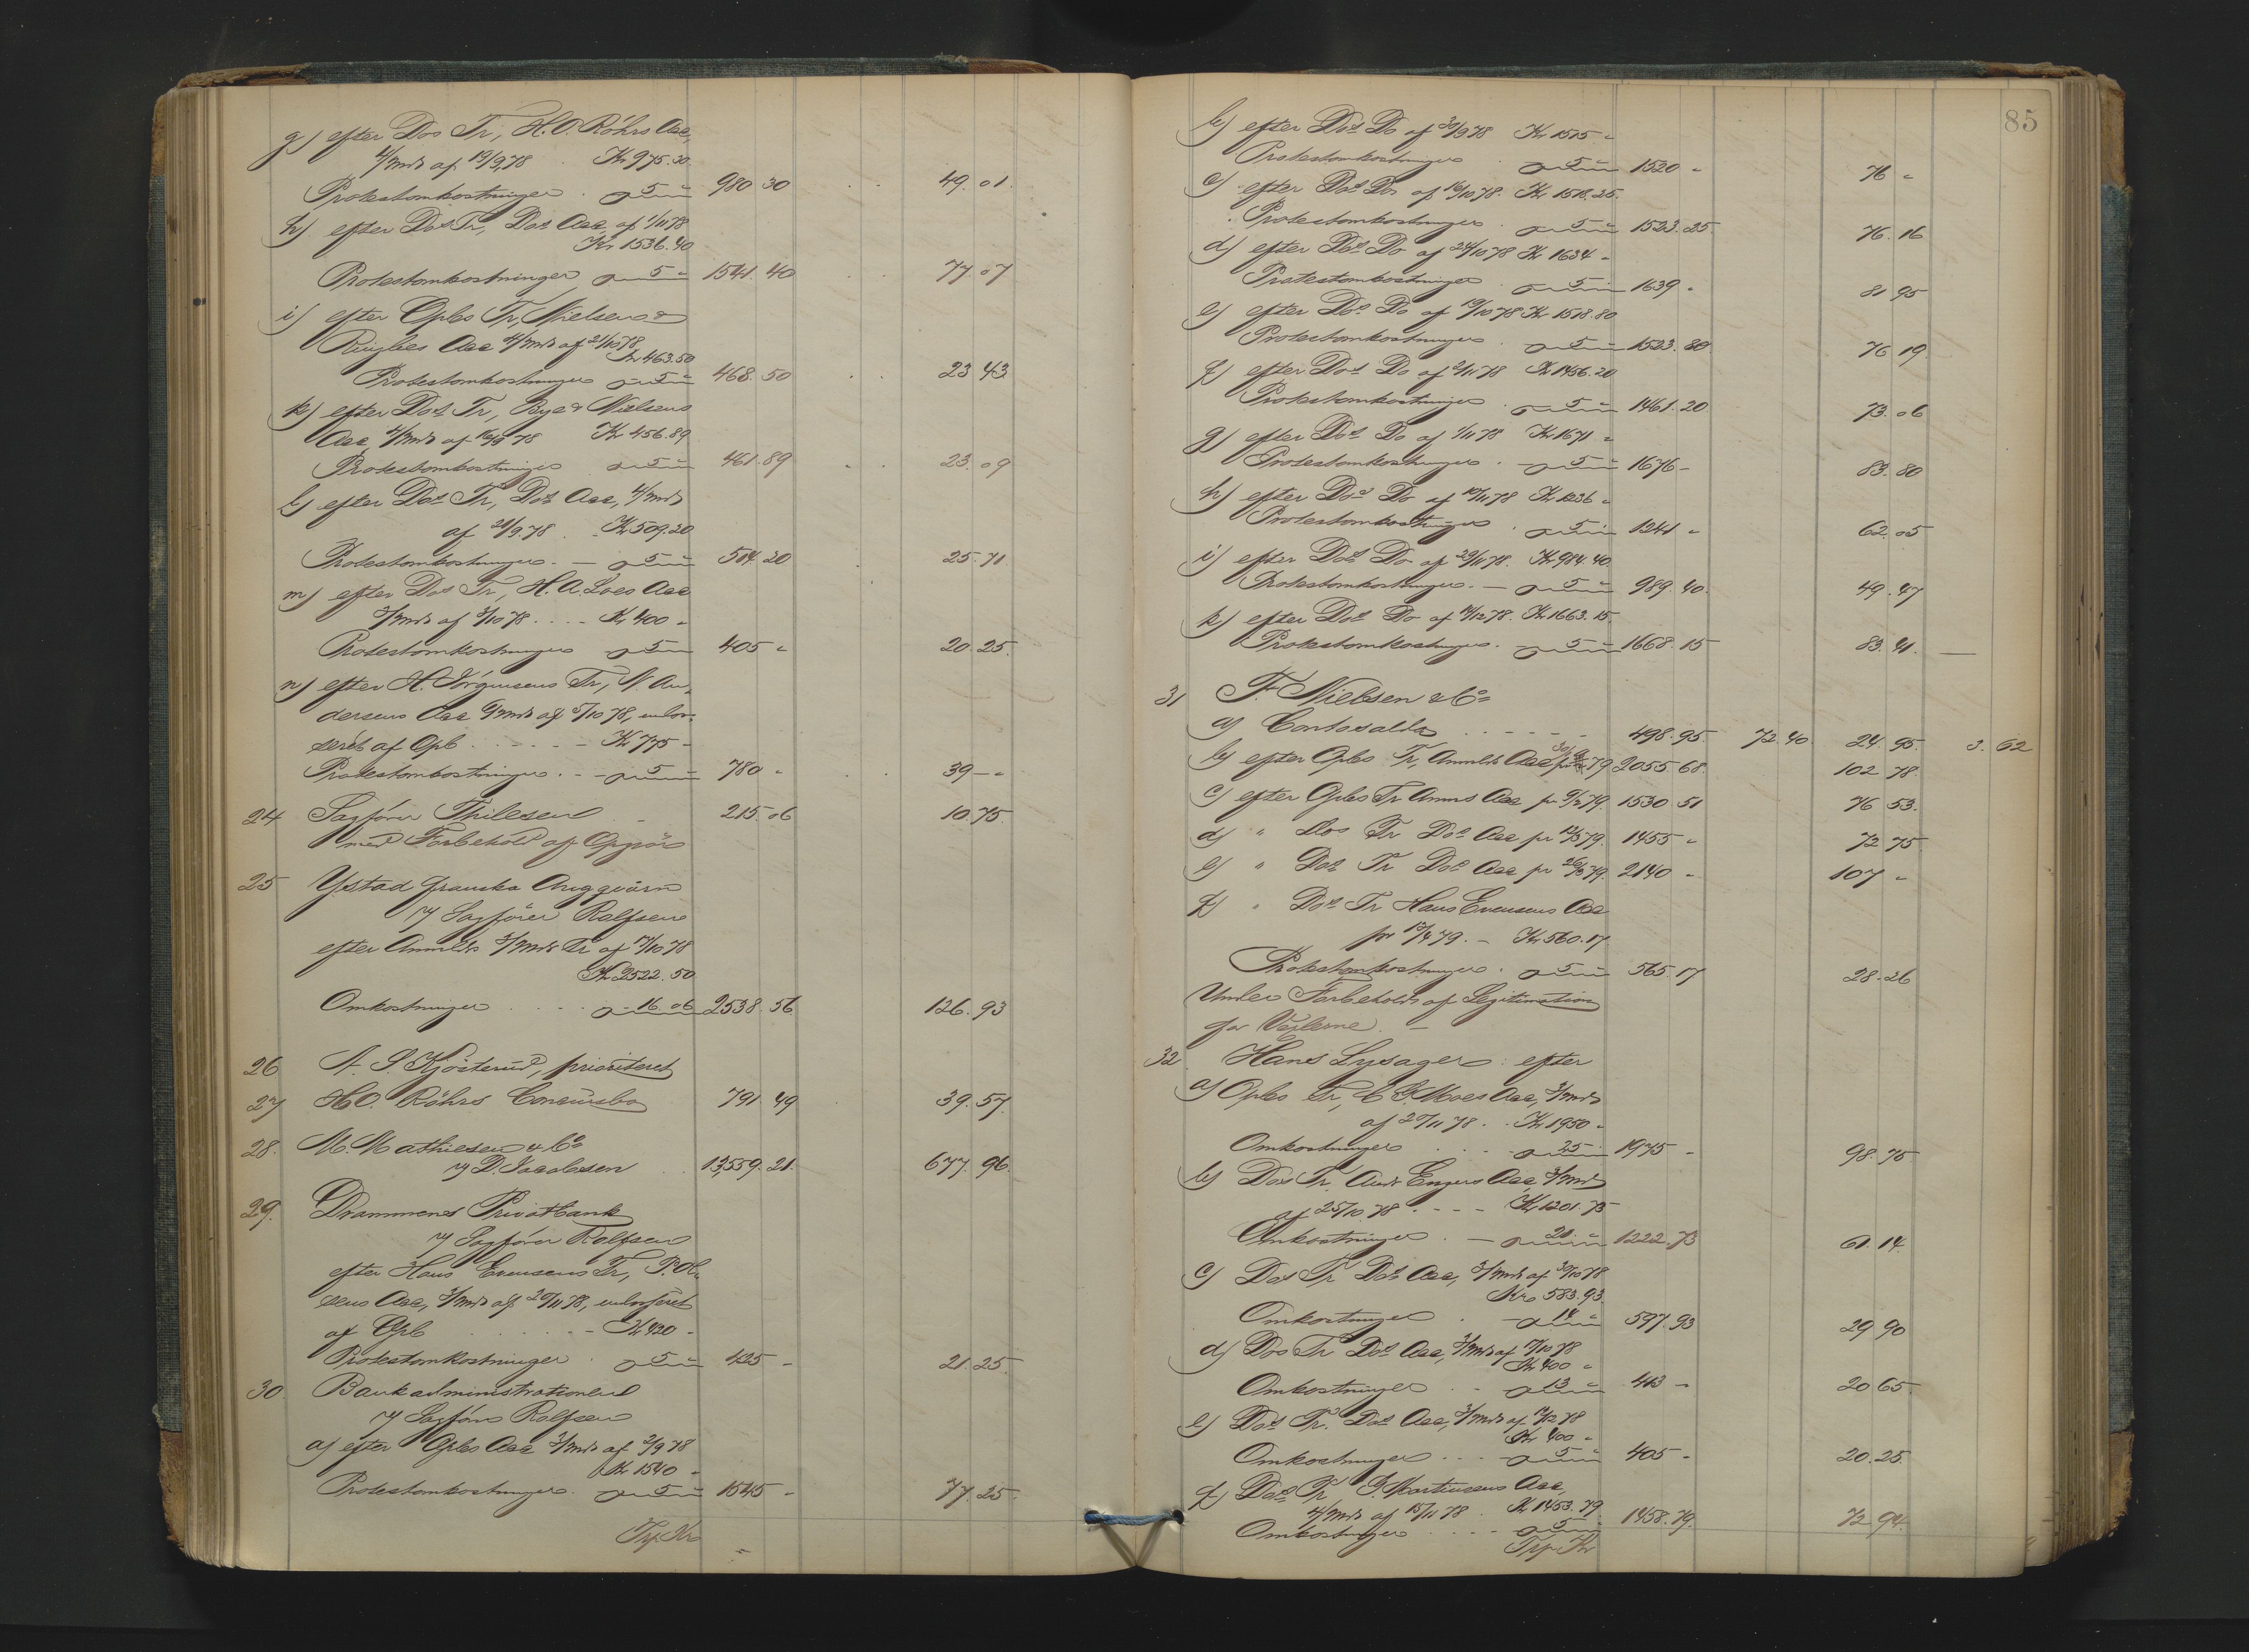 g) efter Dos Tr, H. O. Röhrs Acc,
4/mnd af 19/9 78 . Kr 975.30
Protestomkostninger . " 5 " 980.30 49.01.
h) efter Dos Tr, Dos Acc, af 1/11 78
Kr 1536.40
Protestomkostninger " 5 " 1541.40 77.07
i) efter Opbs Tr, Nielsen &
Ringbes Acc 4/mnd af 21/10 78,
Kr 463.50
Protestomkostninger " 5 " 468.50 23 43
k) efter Dos Tr, Bye & Nielsens
Acc, 4/mnd af 16/9 78 Kr 456.89
Protestomkostninger " 5 " 461.89 23.09
l) efter Dos Tr, Dos Acc, 4/mnd
af 28/9.78 . Kr 509.20
Protestomkostninger . — " 5 " 514.20 25.71
m) efter Dos Tr, H. A. Loes Acc
3/mnd af 3/10 78 . . . . Kr 400 "
Protestomkostninger " 5 " 405 " 20.25.
n) efter H. Jörgensens Tr, N. An-
dersens Acc 6/mnd af 5/10 78, endos-
seret af Opb . . . . . Kr 775 -
Protestomkostninger . — " 5 " 780 " 39 - "
24 Sagförer Thilesen 215.06 10.75.
med Forbehold af Opgjör
25 Ystad Granska Anggvärn
v/ Sagförer Rolfsen
efter Anmelds 3/mnds Tr af 17/10 78
Kr 2522.50
Omkostninger . . . " 16.06 2538.56 126.93
26 A. S. Kjösterud, prioriteret
27 H. O. Röhrs Concursbo 791.49 39.57.
28. M. Mathiesen & Co
v/ D. Jacobsen . . 13,559.21. 677.96
29. Drammens Privatbank
v/ Sagförer Rolfsen
efter Hans Evensens Tr, P. Ol-
sens Acc, 3/mnd af 20/11 78, endosseret
af Opb . . . . . Kr 420 -
Protestomkostninger . " 5 " 425 - 21.25
30. Bankadministrationen
v/ Sagförer Rolfsen
a) efter Opbs Acc 3/mnd af 2/9 78
Kr 1540 -
Protestomkostninger . " 5 " 1545 - 77.25.
Trp. Kr
85
b) efter Dos Do af 30/9 78 Kr 1515 "
Protestomkostninger . " 5 " 1520 " 76 "
c) efter Dos Do af 16/10 78. Kr 1518.25.
Protestomkostninger . " 5 " 1523.25. 76.16
d) efter Dos Do af 24/10 78 Kr 1634 "
Protestomkostninger . " 5 " 1639 " 81 95
e) efter Dos Do af 19/10 78 Kr 1518.80
Protestomkostninger . " 5 " 1523.80 76 19
f) efter Dos Do af 2/11 78 Kr 1456.20
Protestomkostninger . " 5 " 1461.20 73.06
g) efter Dos Do af 1/11 78 Kr 1671 "
Protestomkostninger . " 5 " 1676 - 83.80
h) efter Dos Do af 19/11 78 Kr 1236 "
Protestomkostninger . " 5 " 1241 " 62.05
i) efter Dos Do af 29/11 78. Kr 984.40
Protestomkostninger . — " 5 " 989.40. 49.47
k) efter Dos Do af 4/12 78. Kr 1663.15.
Protestomkostninger . " 5 " 1668.15 83.41. —
31 F. Nielsen & Co
a) Contosaldo . . . . 498.95. 72.40. 24.95. 3.62
b) efter Opbs Tr, Anmelds Acc pr 79 2055.68. 102.78.
c) efter Opbs Tr Anms Acc pr 79. 1530 51 76 53.
d) " Dos Tr Dos Acc pr 79. 1455 " 72 75
e) " Dos Tr Dos Acc pr 79. 2140 - 107 "
f) " Dos Tr Hans Evensens Acc
pr 17/4 79. - Kr 560.17
Protestomkostninger . " 5 " 565.17 28.26
Under Forbehold af Legitimation
for Vexlerne. —
32. Hans Lysager : efter
a) Opbs Tr, C. F. Moes Acc, 3/mnd
af 20/11 78 . . Kr 1950 "
Omkostninger . . " 25 " 1975 - 98.75
b) Dos Tr Ands Engers Acc, 3/mnd
af 25/10 78 . - - - Kr 1201.73
Omkostninger . — " 21 " 1222.73 61.14
c) Dos Tr Dos Acc, 3/mnd af 30/10 78
Kr 583.93.
Omkostninger . " 14 " 597.93 29 90
d) Dos Tr Dos Acc, 3/mnd af 17/10 78
Kr 400 "
Omkostninger . . " 13 " 413 - 20 65.
e) Dos Tr. Dos Acc, 3/mnd af 14/12 78
Kr 400 "
Omkostninger . . . " 5 " 405 - 20.25.
f) Dos Tr G. Martinsens Acc,
4/mnd af 15/11 78 Kr 1453.79
Omkostninger . . . . " 5 " 1458.79. 72 94.
Trp. Kr